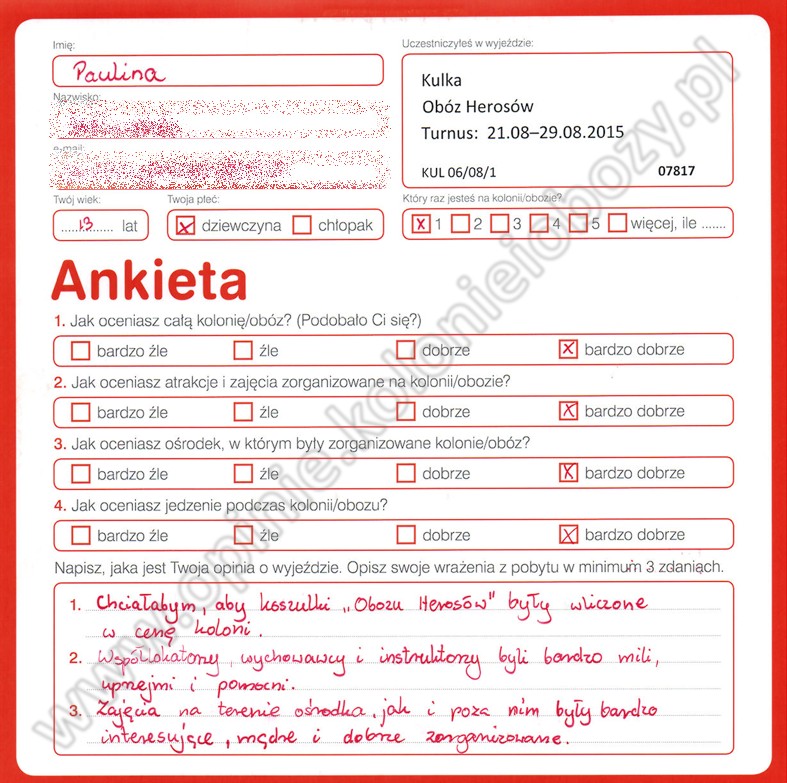 Imię:
Paulina
Uczestniczyłeś w wyjeździe:
Kulka
Obóz Herosów
Turnus: 21.08–29.08.2015
KUL 06/08/1 07817
Nazwisko:
e-mail:
Twój wiek:
13 lat
Twoja płeć:
dziewczyna chłopak
Który raz jesteś na kolonii/obozie?
1 2 3 4 5 więcej, ile .......
Ankieta
1. Jak oceniasz całą kolonię/obóz? (Podobało Ci się?)
bardzo źle źle dobrze bardzo dobrze
2. Jak oceniasz atrakcje i zajęcia zorganizowane na kolonii/obozie?
bardzo źle źle dobrze bardzo dobrze
3. Jak oceniasz ośrodek, w którym były zorganizowane kolonie/obóz?
bardzo źle źle dobrze bardzo dobrze
4. Jak oceniasz jedzenie podczas kolonii/obozu?
bardzo źle źle dobrze bardzo dobrze
Napisz, jaka jest Twoja opinia o wyjeździe. Opisz swoje wrażenia z pobytu w minimum 3 zdaniach.
1. Chciałabym, aby koszulki „Obozu Herosów" były wliczone
w cenę koloni.
2. Współlokatorzy, wychowawcy i instruktorzy byli bardzo mili,
uprzejmi i pomocni.
3. Zajęcia na terenie ośrodka, jak i poza nim były bardzo
interesujące, mądre i dobrze zorganizowane.
www.opinie.kolonieiobozy.pl